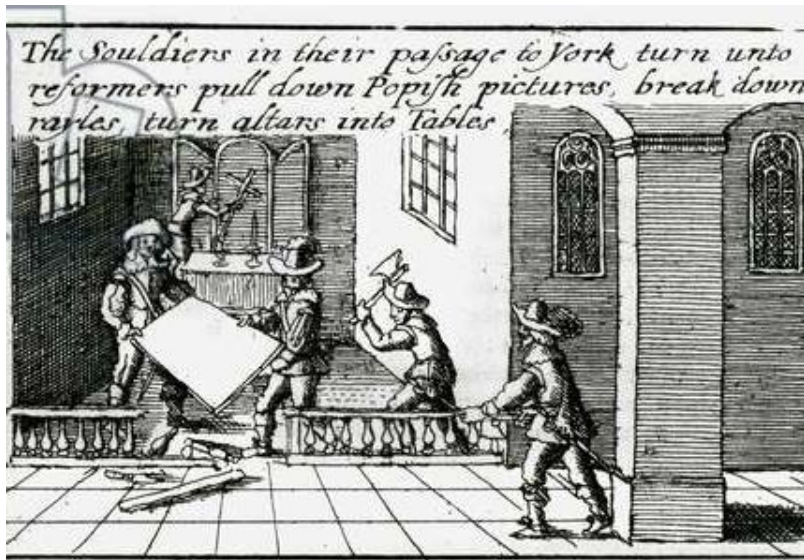 The Souldiers in their paſsage to York turn unto
reformers pull down Popiſh pictures, break down
rayles, turn altars into Tables,